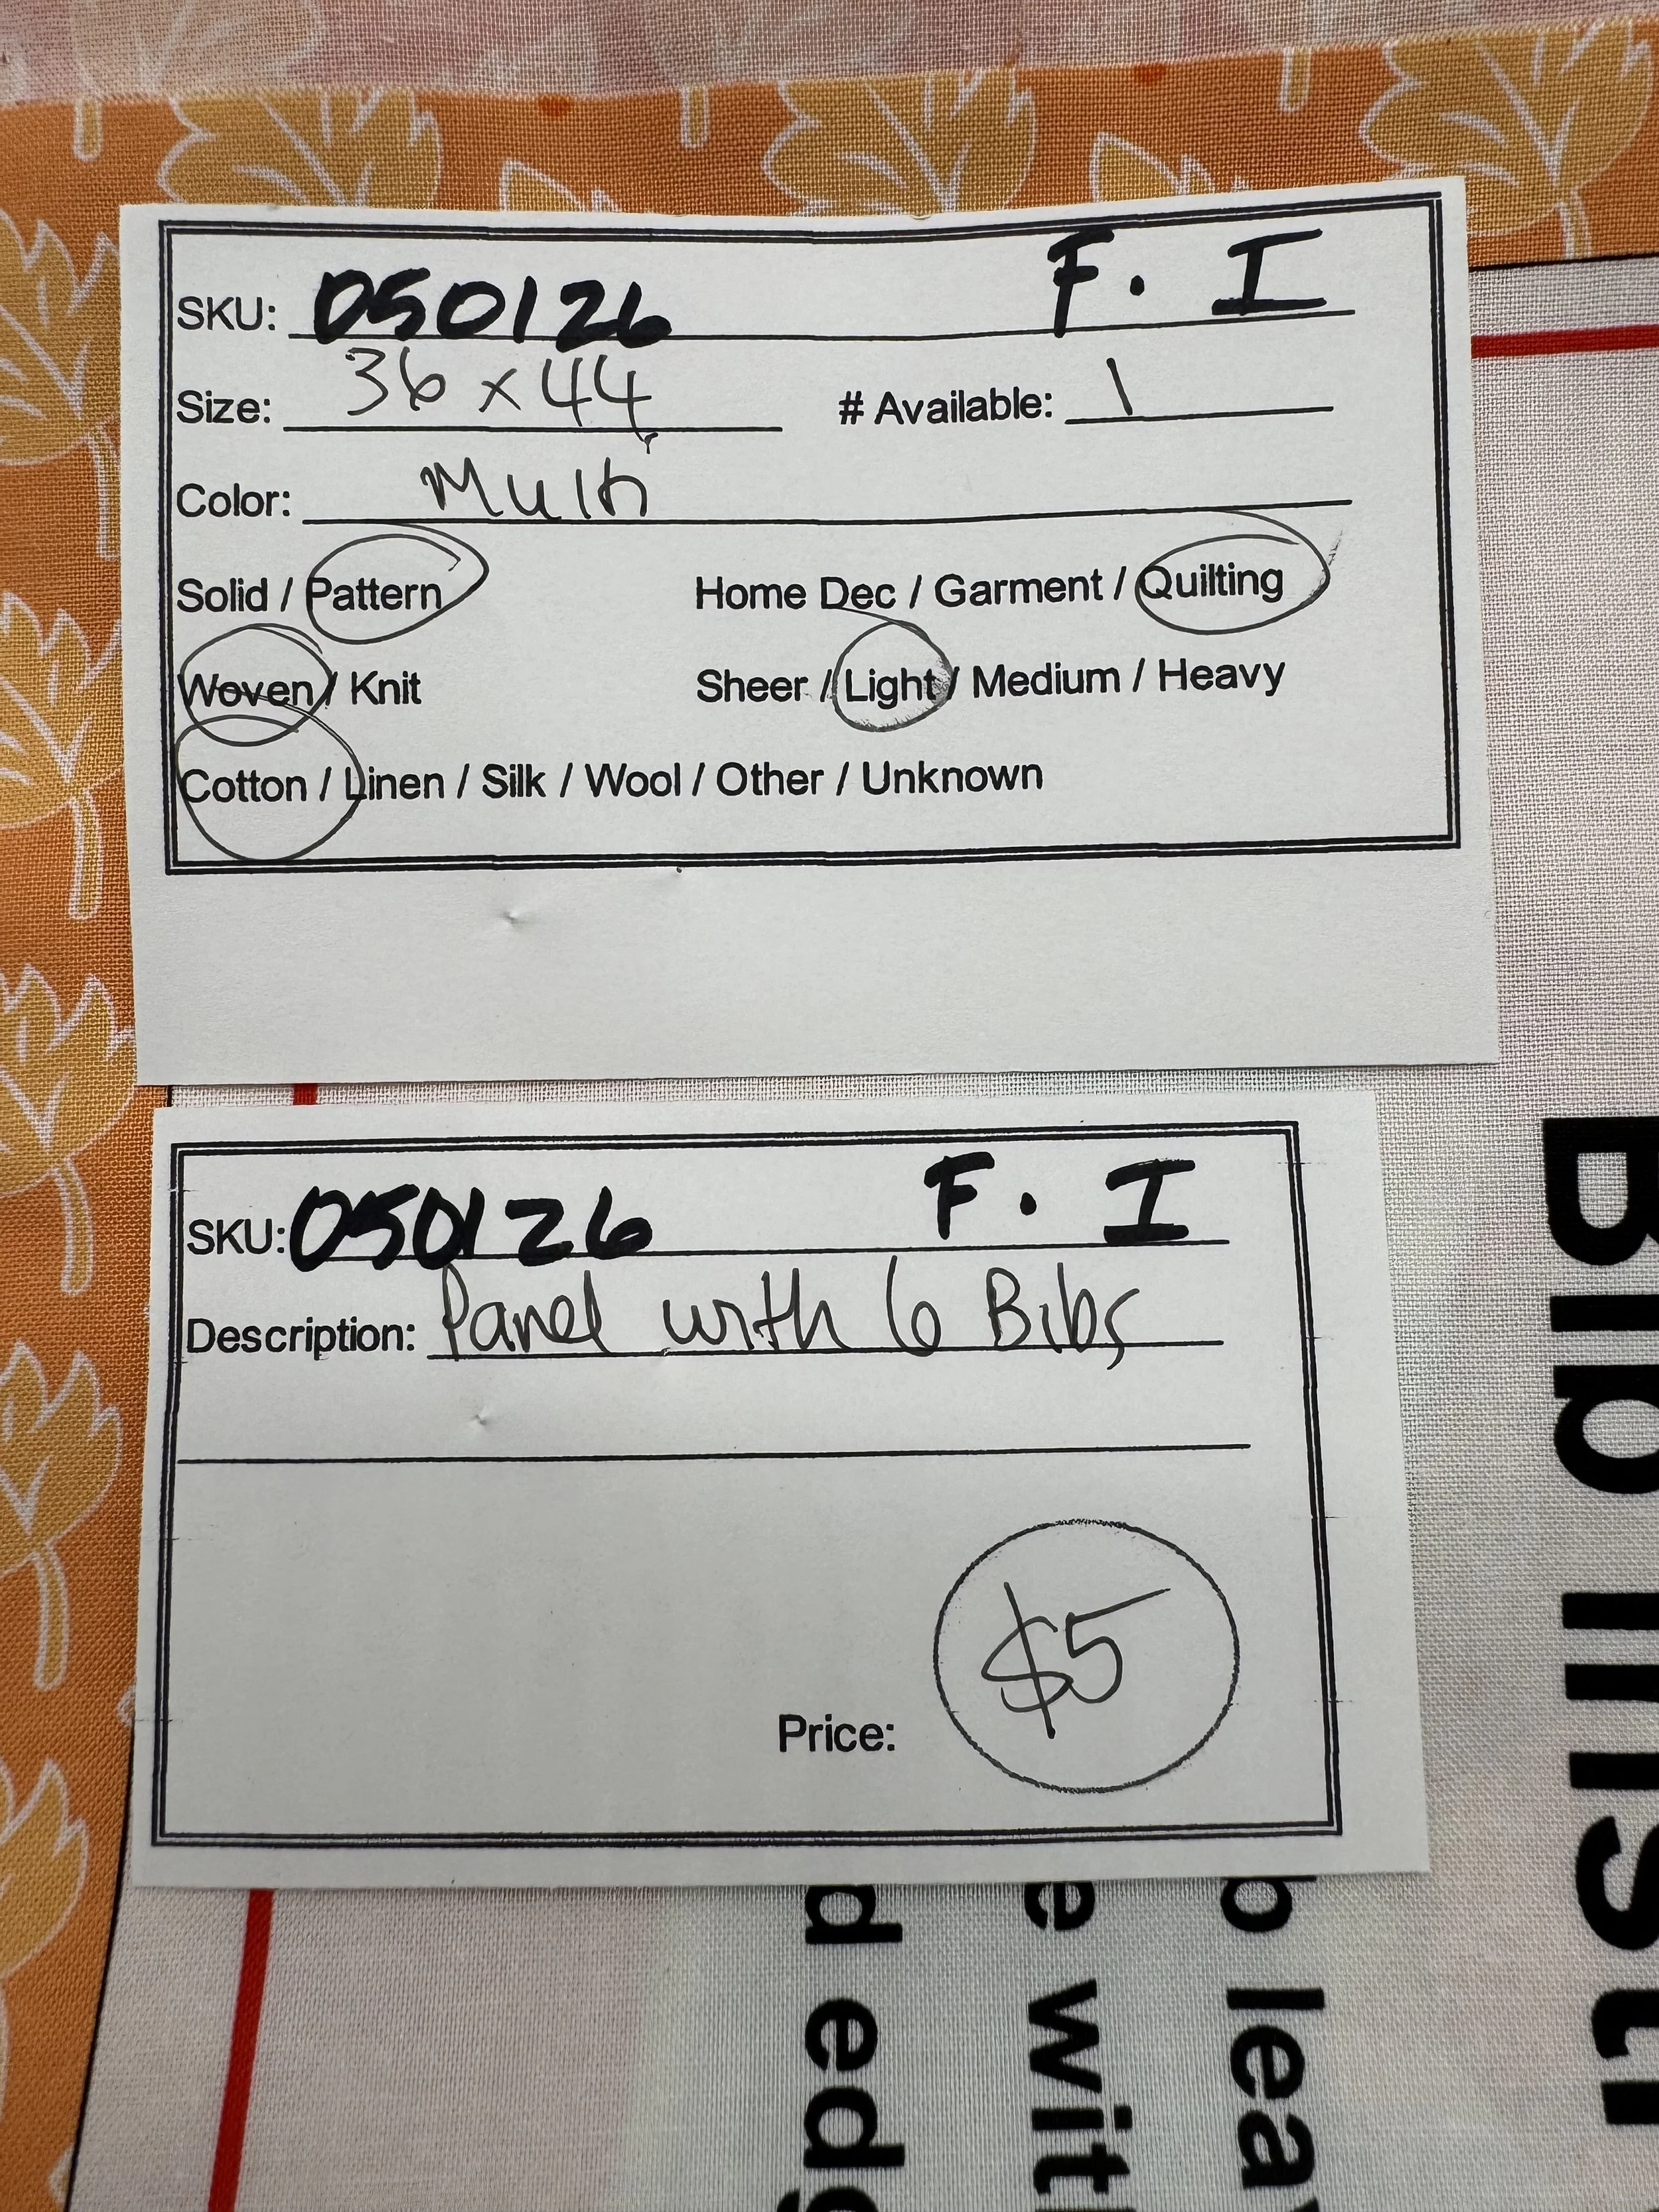 SKU: 050126 F. I
Size: 36 x 44 # Available: 1
Color: Multi
Solid / Pattern Home Dec / Garment / Quilting
Woven / Knit Sheer / Light / Medium / Heavy
Cotton / Linen / Silk / Wool / Other / Unknown
SKU: 050126 F. I
Description: Panel with 6 Bibs
Price: $5
Bib Inst
b lea
e wit
d edg